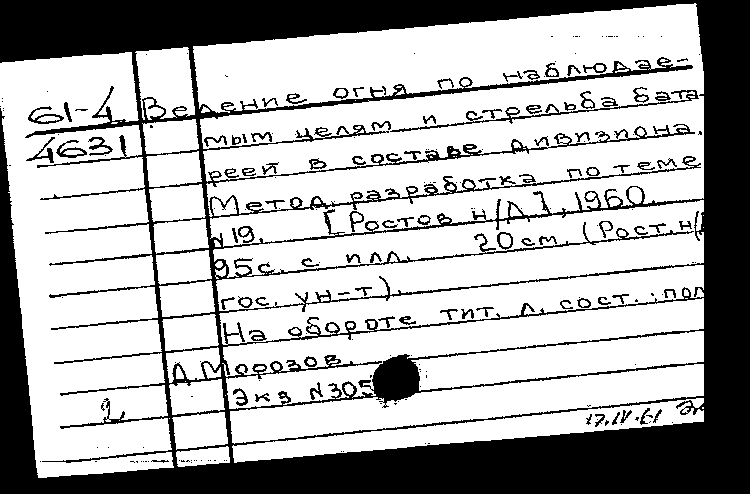 61-4 Ведение огня по наблюдае-
4631 мым целям и стрельба бата-
реей в составе дивизиона.
Метод. разработка по теме
N19. [Ростов н/Д], 1960.
95с. с илл. 20см. (Рост.н/Д
гос. ун-т).
На обороте тит. л. сост.: пол
Д.Морозов.
Экз N305
2
17.IV.61